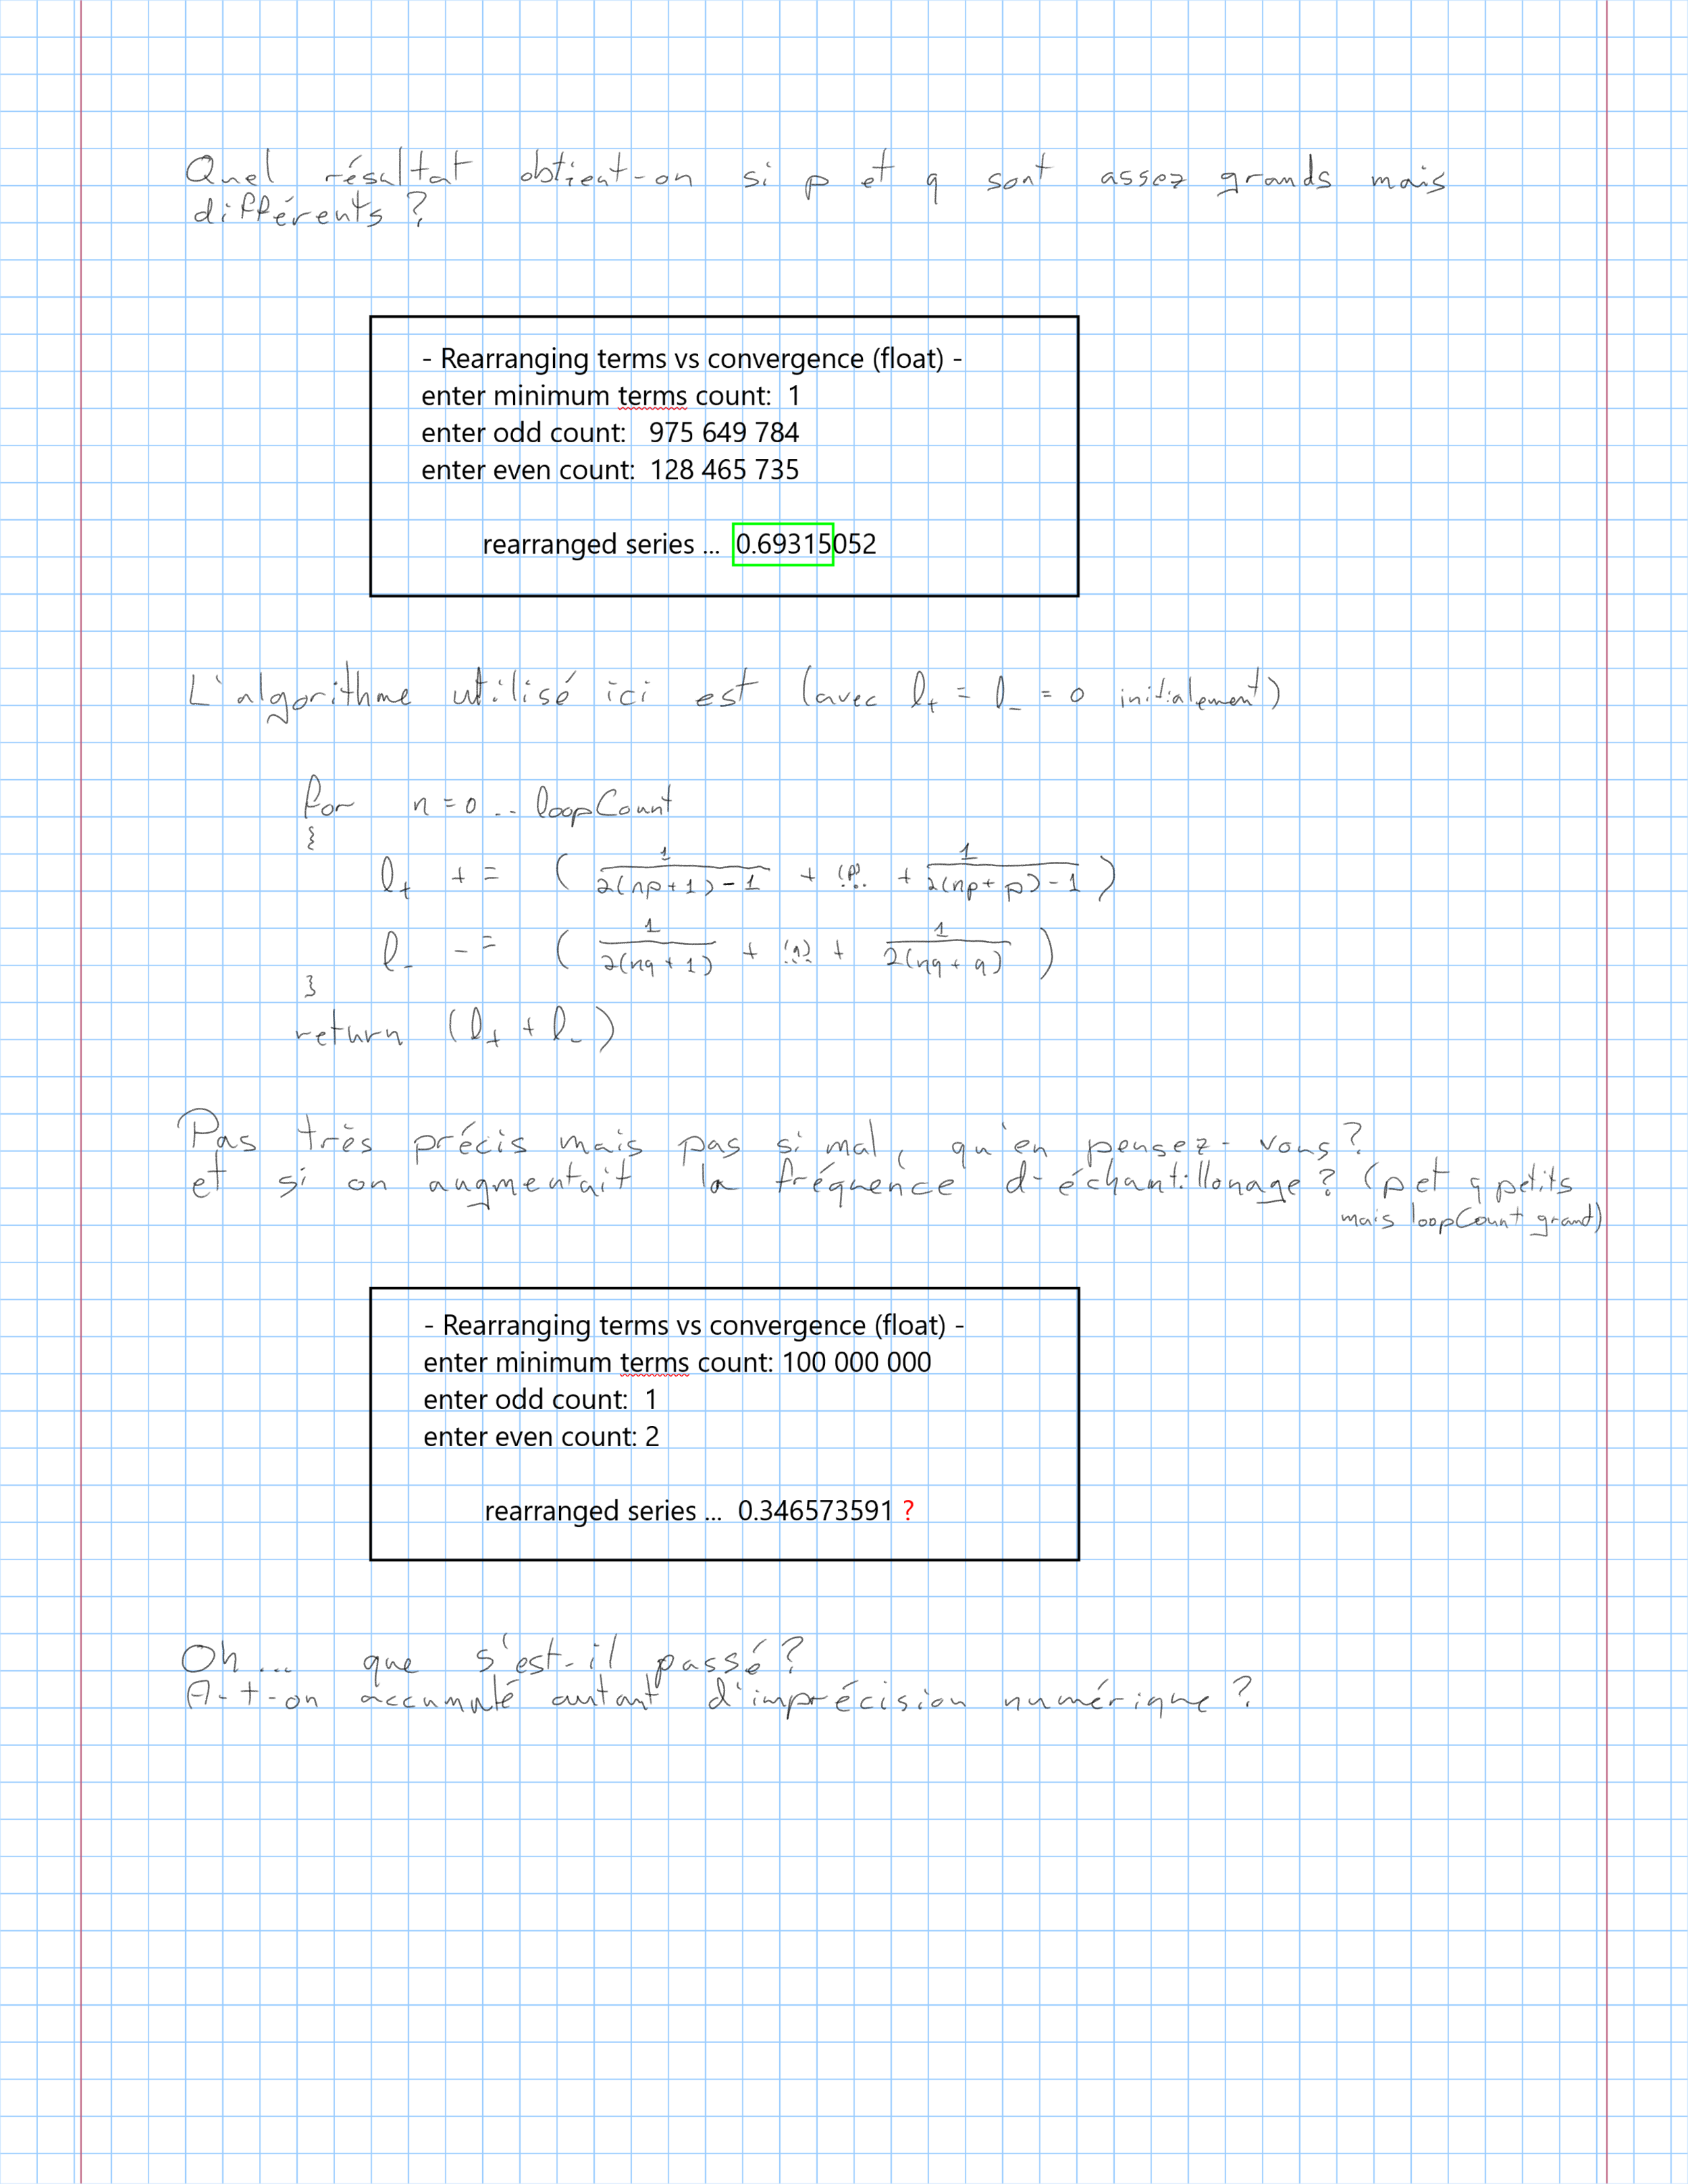 Quel résultat obtient-on si p et q sont assez grands mais
différents ?
- Rearranging terms vs convergence (float) -
enter minimum terms count: 1
enter odd count: 975 649 784
enter even count: 128 465 735
rearranged series ... 0.69315052
L'algorithme utilisé ici est (avec l₊ = l₋ = 0 initialement)
for n=0 .. loopCount
{
l₊ += ( 1/(2(np+1)-1) + .(p). + 1/(2(np+p)-1) )
l₋ -= ( 1/(2(nq+1)) + .(q). + 1/(2(nq+q)) )
}
return (l₊ + l₋)
Pas très précis mais pas si mal, qu'en pensez-vous ?
et si on augmentait la fréquence d'échantillonage ? (p et q petits
mais loopCount grand)
- Rearranging terms vs convergence (float) -
enter minimum terms count: 100 000 000
enter odd count: 1
enter even count: 2
rearranged series ... 0.346573591 ?
Oh... que s'est-il passé ?
A-t-on accumulé autant d'imprécision numérique ?